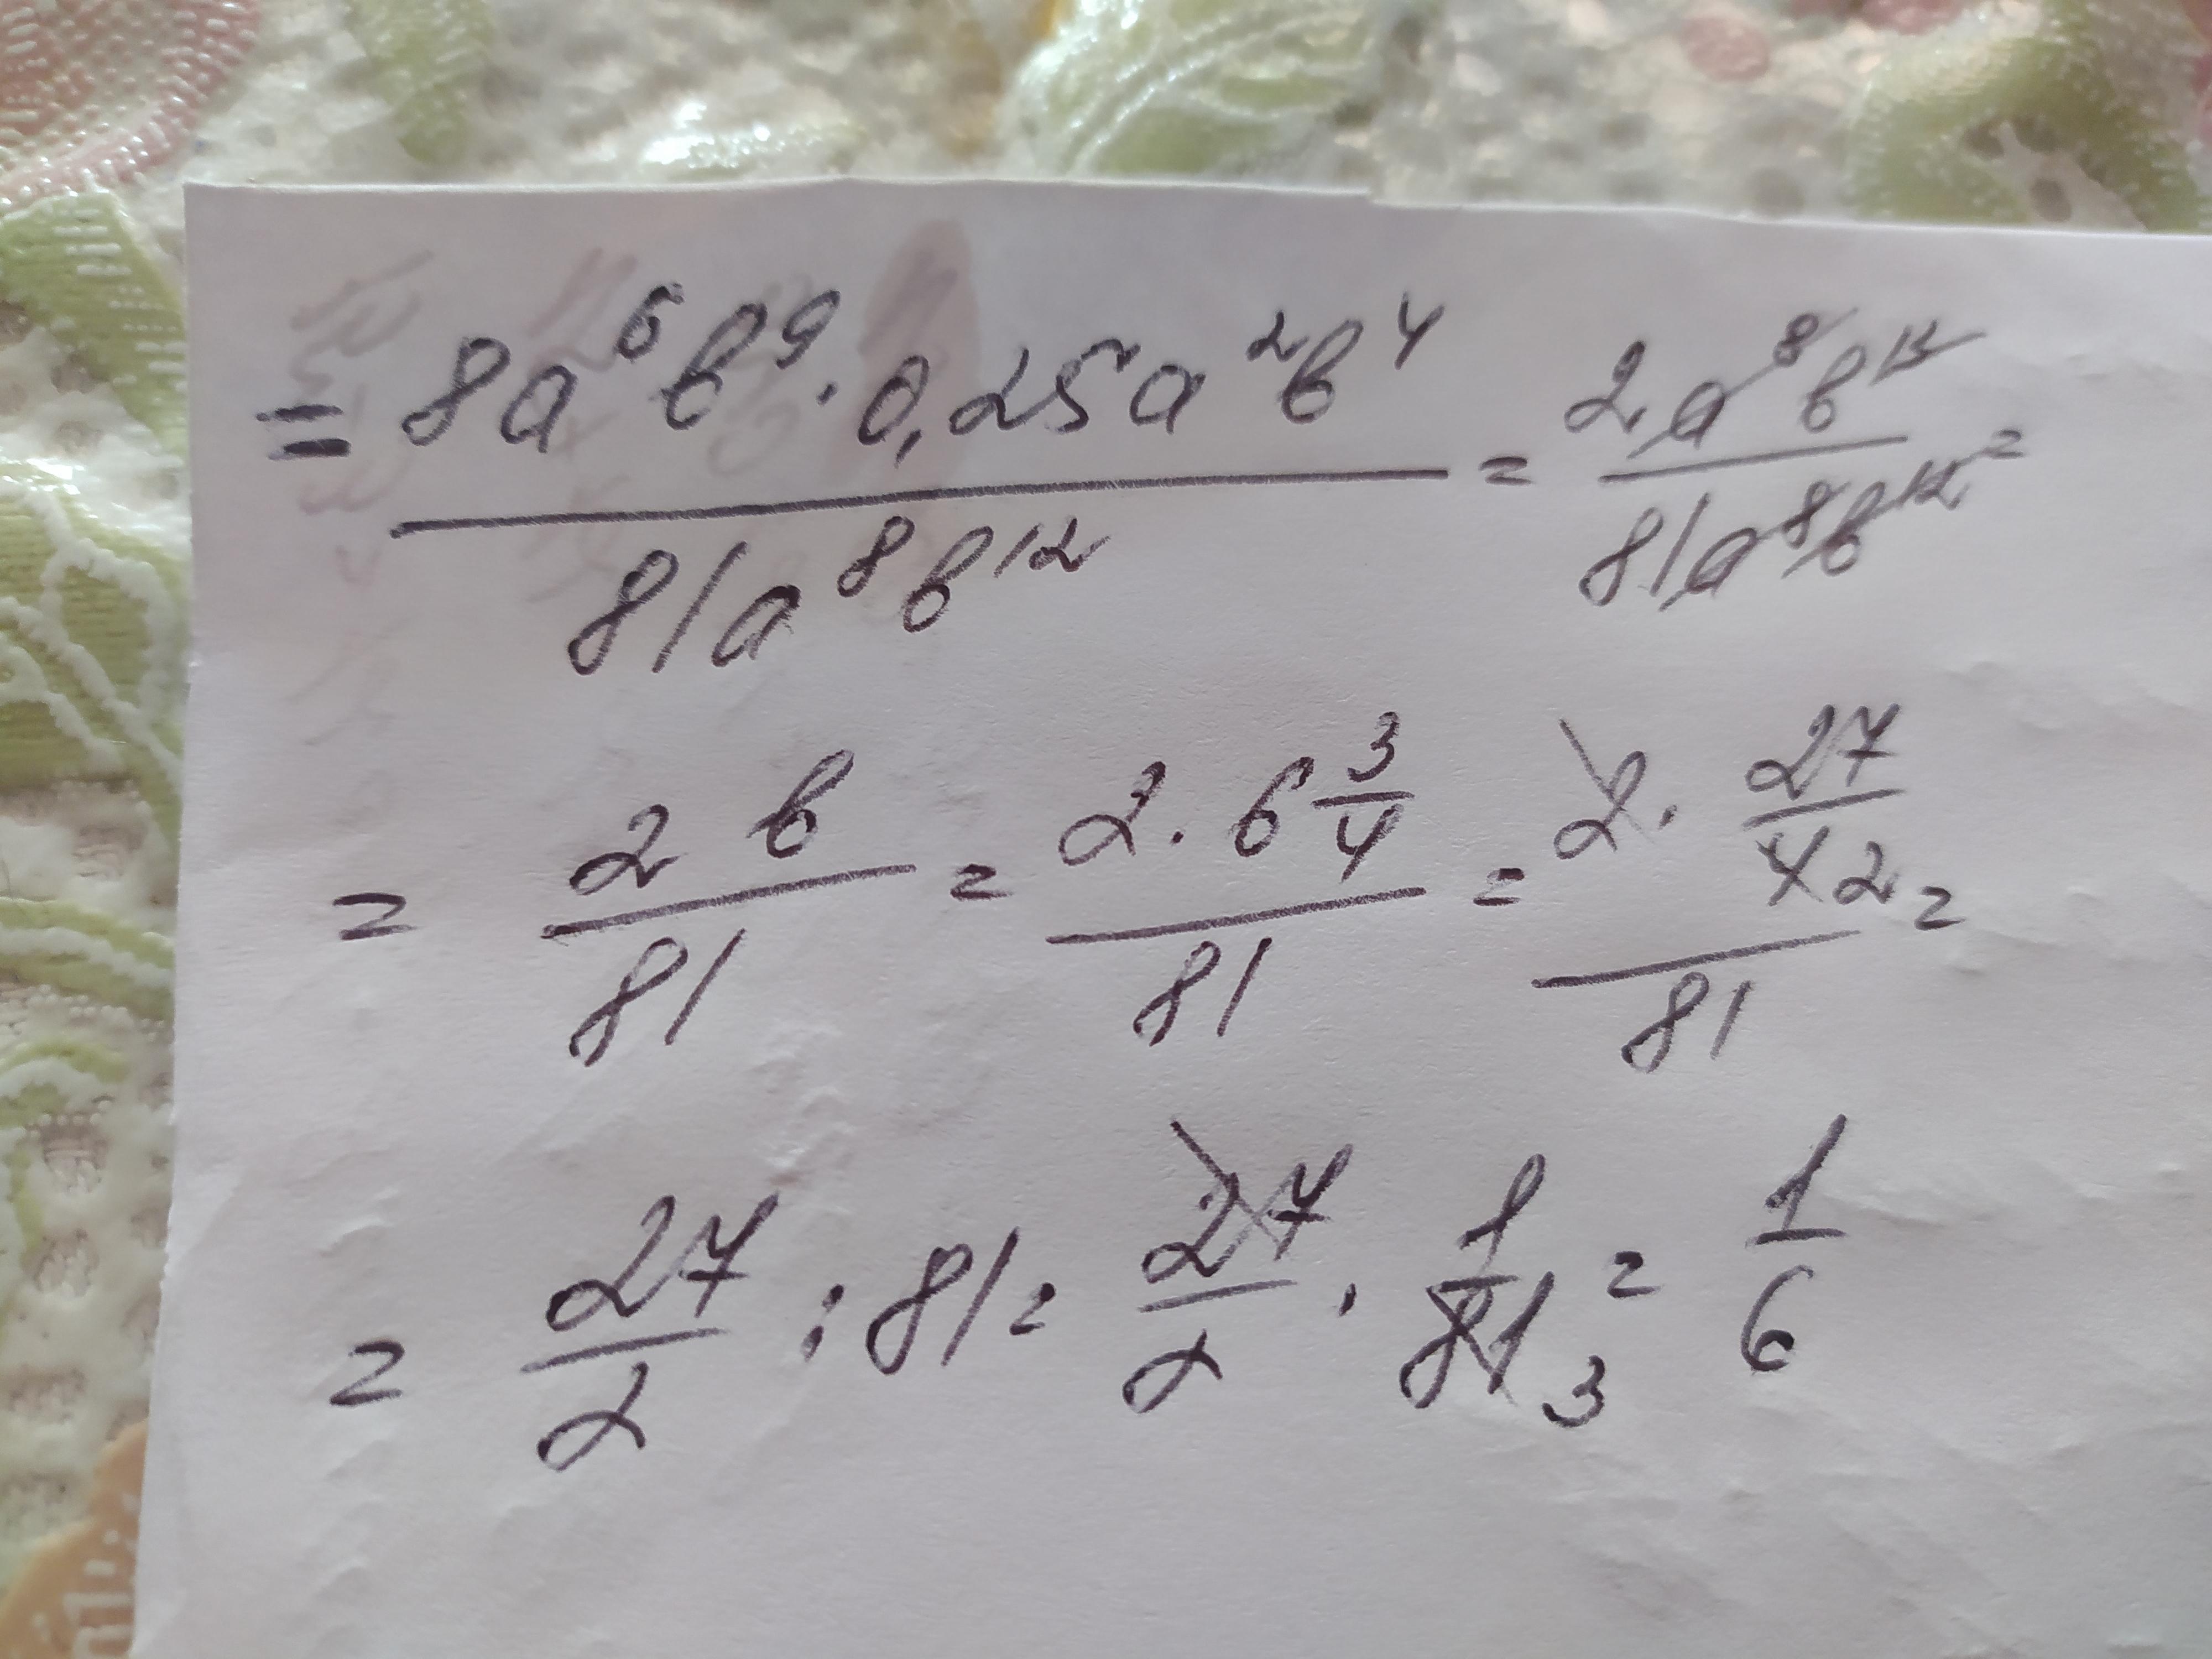 = (8a⁶b⁹ · 0,25a²b⁴)/(81a⁸b¹²) = (2a⁸b¹³)/(81a⁸b¹²) =
= (2b)/81 = (2 · 6 3/4)/81 = (2 · 27/4 2)/81 =
= 27/2 : 81 = 27/2 · 1/81 3 = 1/6